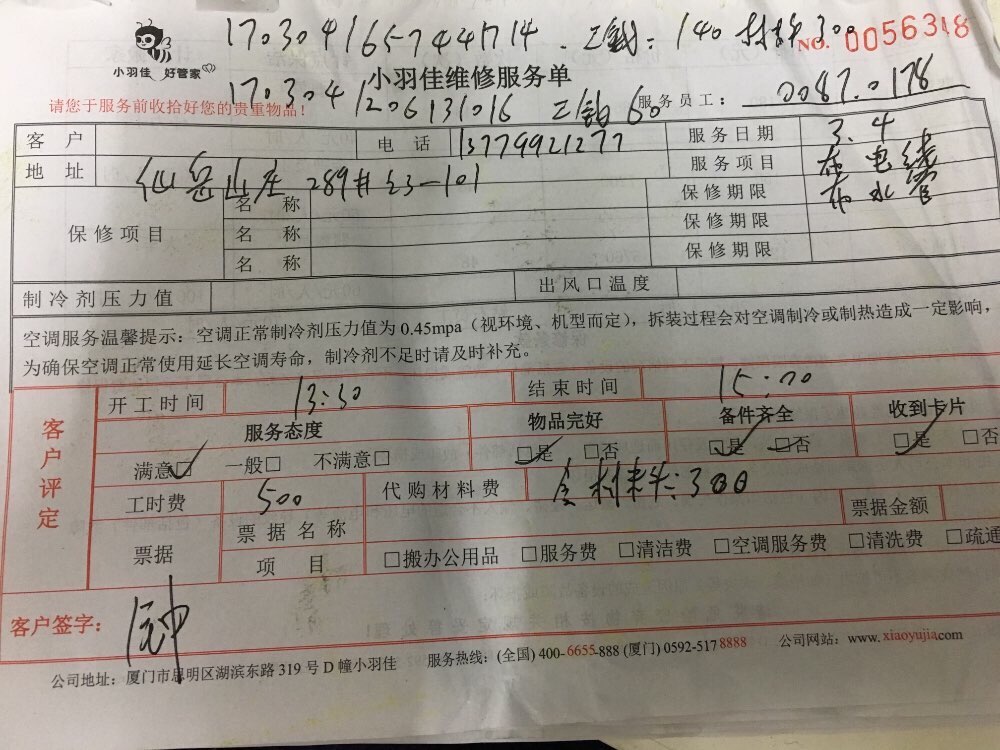 1703041657441714. 工钱: 140 材料300
NO. 0056318
小羽佳 好管家
小羽佳维修服务单
1703041206131016 工钱 60
请您于服务前收拾好您的贵重物品!
服务员工: 0087.0178
客户 电话 13779921277 服务日期 3.4
地址 仙岳山庄 289# 23-101 服务项目 布电线
布水管
保修项目 名称 保修期限
名称 保修期限
名称 保修期限
制冷剂压力值 出风口温度
空调服务温馨提示: 空调正常制冷剂压力值为 0.45mpa (视环境、机型而定), 拆装过程会对空调制冷或制热造成一定影响,
为确保空调正常使用延长空调寿命, 制冷剂不足时请及时补充。
客户评定
开工时间 13:30 结束时间 15:00
服务态度 物品完好 备件齐全 收到卡片
满意□ 一般□ 不满意□ □是 □否 □是 □否 □是 □否
工时费 500 代购材料费 含材料:300
票据 票据名称 票据金额
项目 □搬办公用品 □服务费 □清洁费 □空调服务费 □清洗费 □疏通
客户签字:
公司地址: 厦门市思明区湖滨东路 319 号 D 幢小羽佳 服务热线: (全国) 400-6655-888 (厦门) 0592-5178888 公司网站: www.xiaoyujia.com